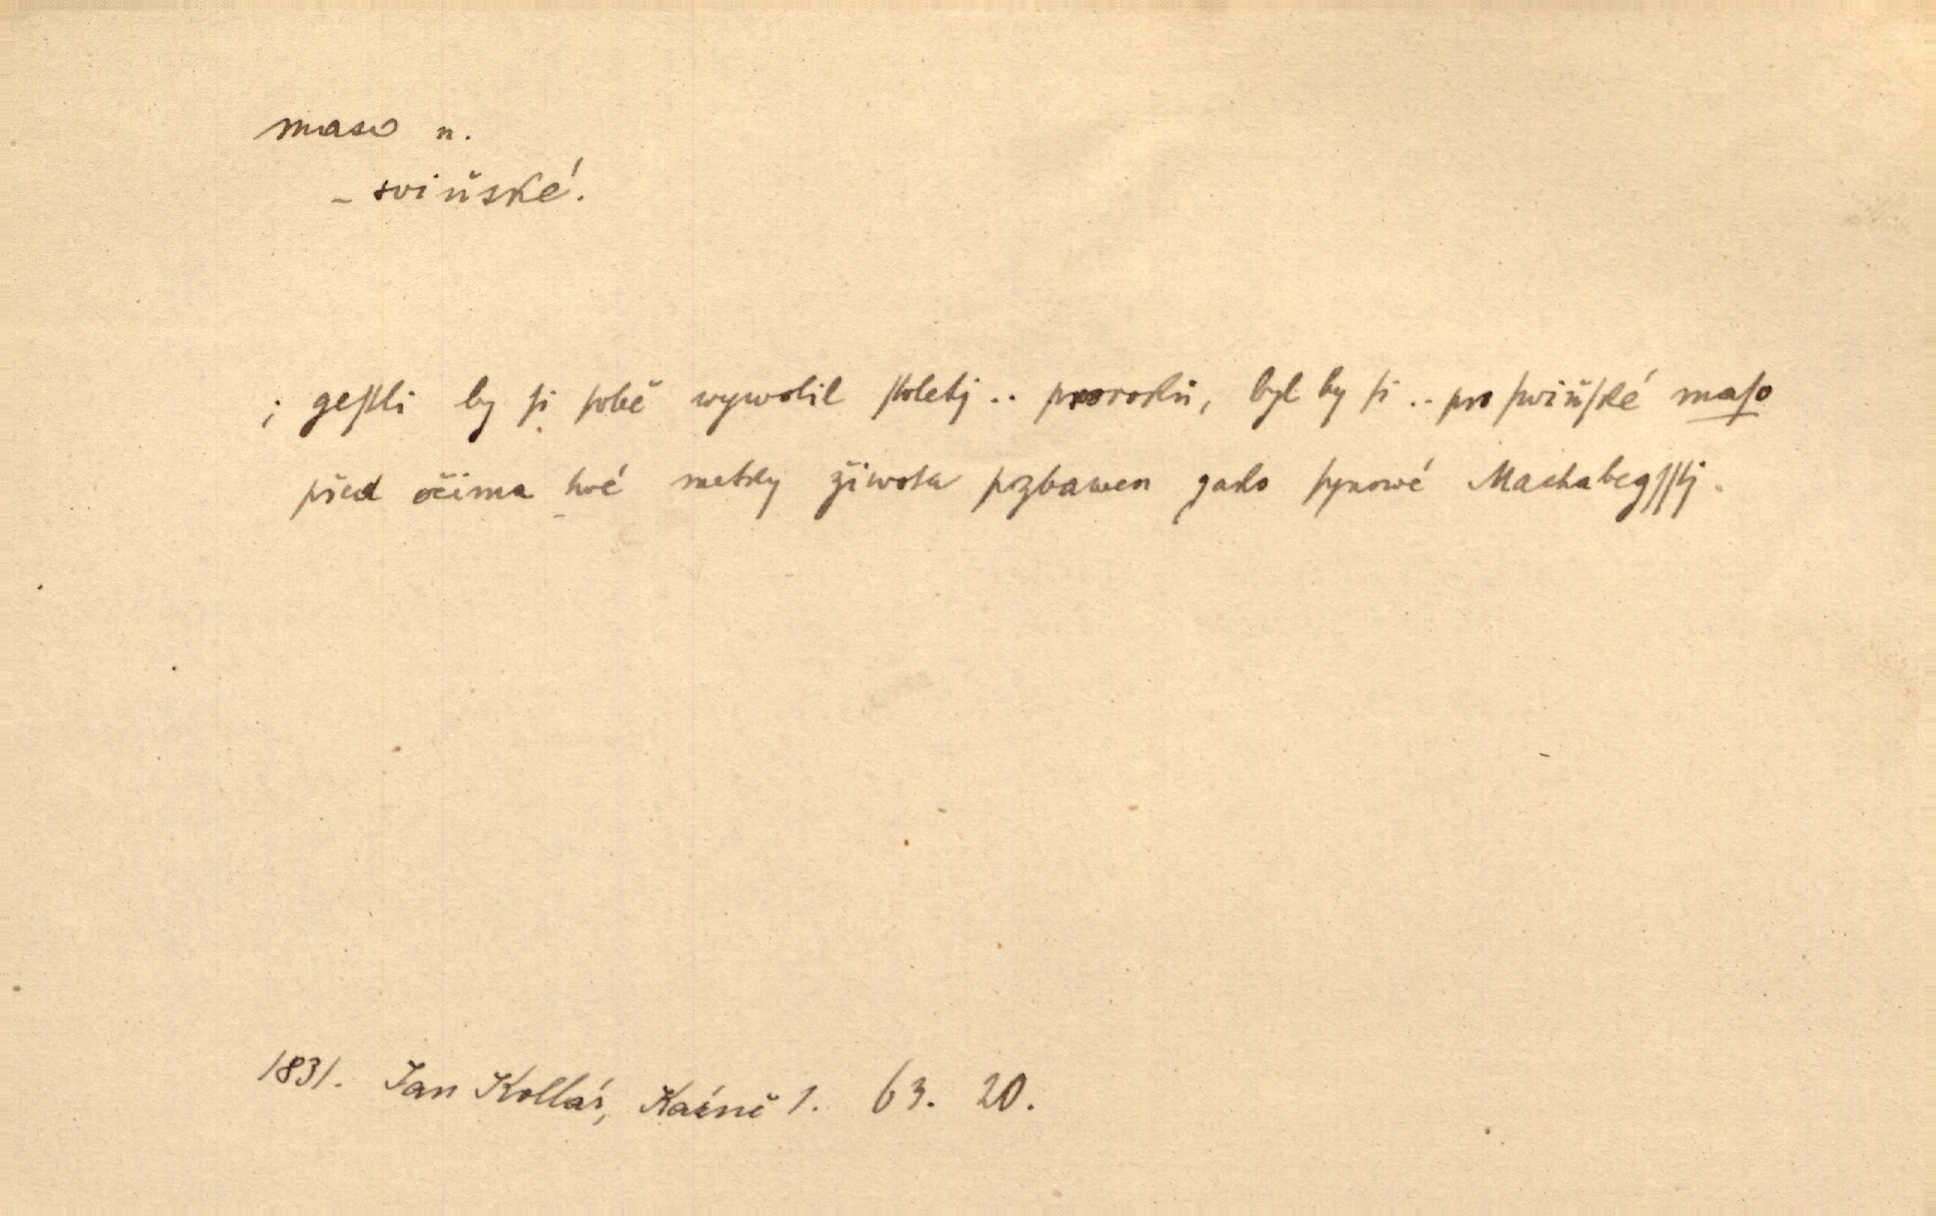 maso n.
– sviňské.
; geſtli by ſi ſobě wywolil ſtoletj .. proroků, byl by ſi .. pro ſwiňſké maſo
před očima twé matky žiwota pozbawen gako ſynowé Machabegſſtj.
1831. Jan Kollár, Kázně 1. 63. 20.